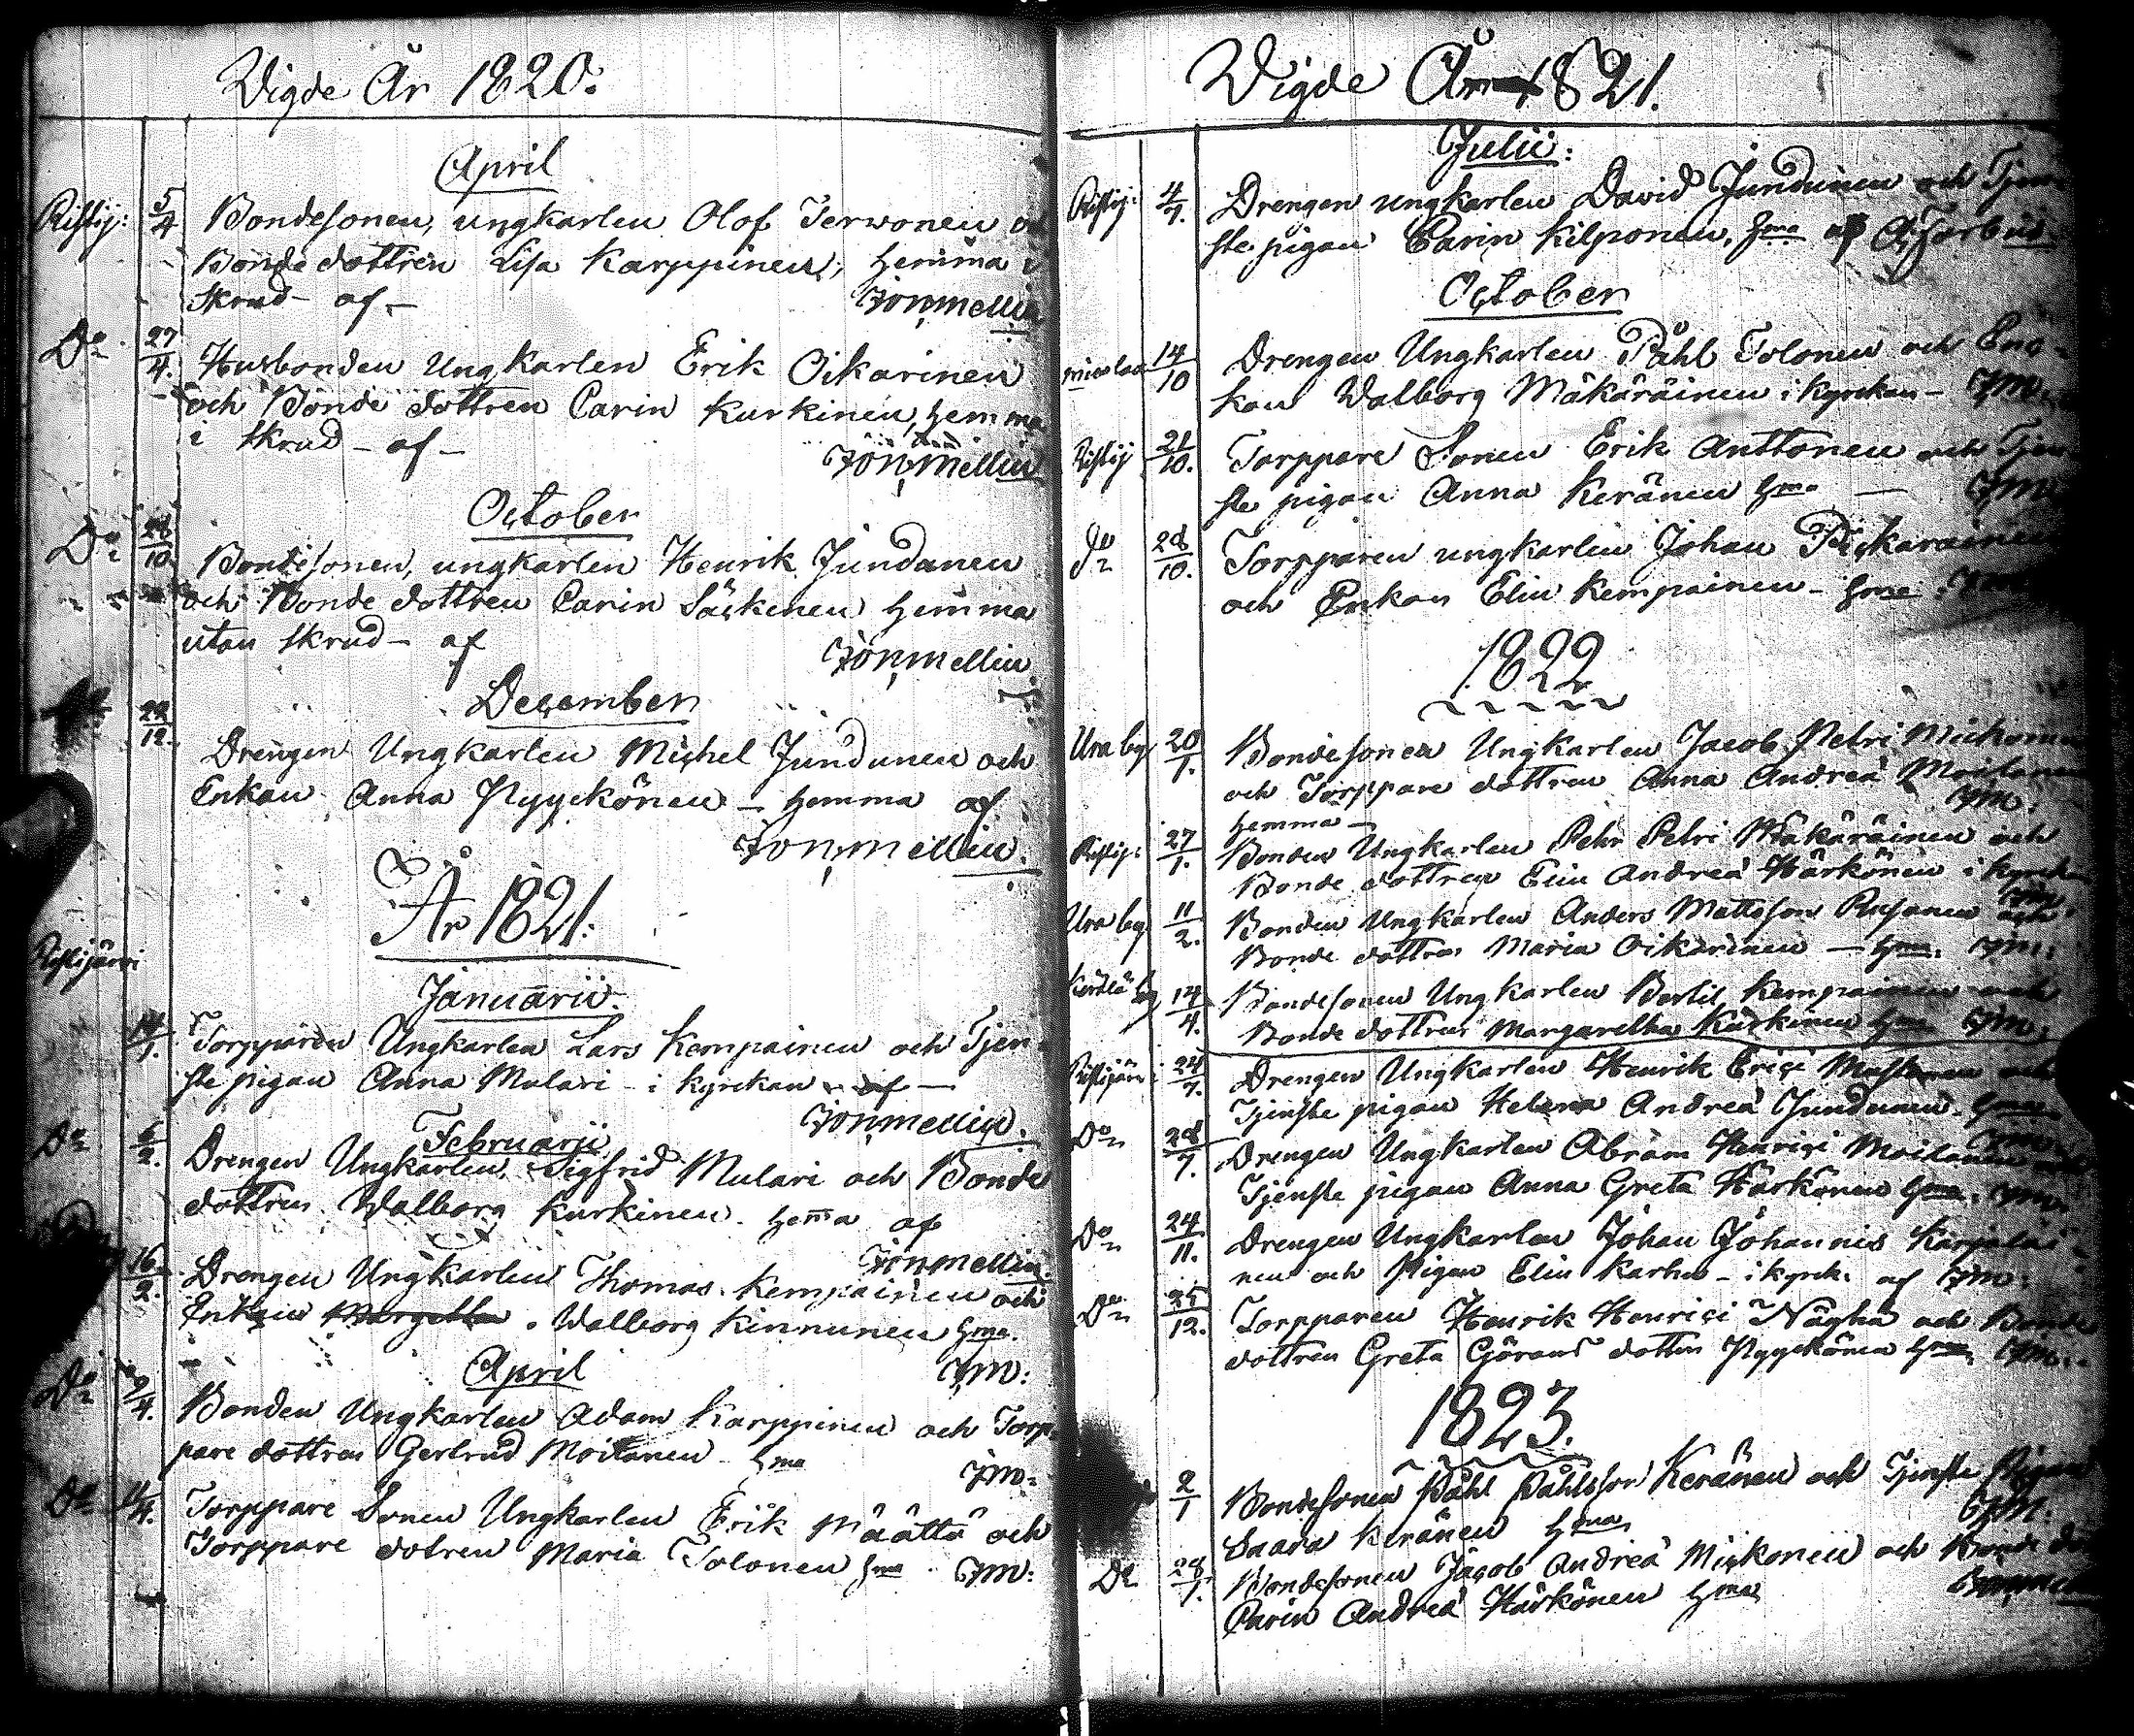 Vigde År 1820:
April
Ristij: 5/4 Bondesonen, ungkarlen Olof Terwonen
Bonde dottren Lisa Karppinen, hemma i
skrud – af – Jon, Mellin
Do 27/4. Husbonden Ungkarlen Erik Oikarinen
och Bonde dottren Carin Kurkinen, hemma
i skrud – af – Jon, Mellin
October
Do 28/10. Bondesonen, ungkarlen Henrik Jundunen
och Bonde dottren Carin Säckinen hemma
utan skrud – af Jon, Mellin
December
22/12. Drengen Ungkarlen Michel Jundunen och
Enkan Anna Nyyckönen – hemma af
Jon, Mellin.
År 1821:
Ristijärvi
Januarii
14/1. Torpparen Ungkarlen Lars Kempainen och Tjen-
ste pigan Anna Mulari – i kyrckan af –
Jon, Mellin.
Februarii
Do 6/2. Drengen Ungkarlen Sigfrid Mulari och Bonde
dottren Walborg Kurkinen. hemma af
Jon, Mellin.
16/2. Drengen Ungkarlen Thomas Kempainen och
Enkan Walborg Kinnunen hma.
April JM:
Do 9/4. Bonden Ungkarlen Adam Karppinen och Torp-
pare dottren Gertrud Moilanen hma JM:
Do /4. Torppare Sonen Ungkarlen Erik Määttä och
Torppare dotren Maria Tolonen hma JM:
Vigde År 1821.
Julii:
Ristij: 4/7. Drengen ungkarlen David Jundunen och Tjen-
ste pigan Carin Kilponen, hma af
October
14/10 Drengen Ungkarlen Påhl Tolonen och En-
kan Walborg Mäkäräinen i kyrckan – JM.
Ristij 21/10. Torppare Sonen Erik Anttonen och Tjen-
ste pigan Anna Keränen hma – JM.
Do 28/10. Torpparen ungkarlen Johan
och Enkan Elin Kempainen – hma JM
1822
Ura by 20/1. Bondesonen Ungkarlen Jacob Petri Mickonen
och Torppare dottren Anna Andreæ Moilanen
hemma – JM.
Ristij: 27/1. Bonden Ungkarlen Pehr Petri Mäkäräinen och
Bonde dottren Elin Andreæ Härkönen i kyrckan
JM.
Ura by 11/2. Bonden Ungkarlen Anders Mattsson och
Bonde dottren Maria Oikarinen – hma. JM:
14/4. Bondesonen Ungkarlen Bertil Kempainen och
Bonde dottren Margaretha Kurkinen hma JM.
Ristijärvi 24/7. Drengen Ungkarlen Henrik Erici och
Tjenste pigan Helena Andreæ Jundunen. hma
JM
Do 28/7. Drengen Ungkarlen Abram Henrici Moilanen och
Tjenste pigan Anna Greta Härkönen hma. JM.
Do 24/11. Drengen Ungkarlen Johan Johannis Karjalai-
nen och Pigan Elin Karhu – i kyrck. af JM:
Do 25/12. Torpparen Henrik Henrici Någha och Bonde
dottren Greta Görans dotter Nyyckönen hma. JM:
1823.
2/1 Bondesonen Påhl Påhlsson Keränen och Tjenste Pigan
Saara Keränen hma JM.
Do 28/1. Bondesonen Jacob Andreæ Mickonen och Bonde dot
Carin Andreæ Härkönen hma